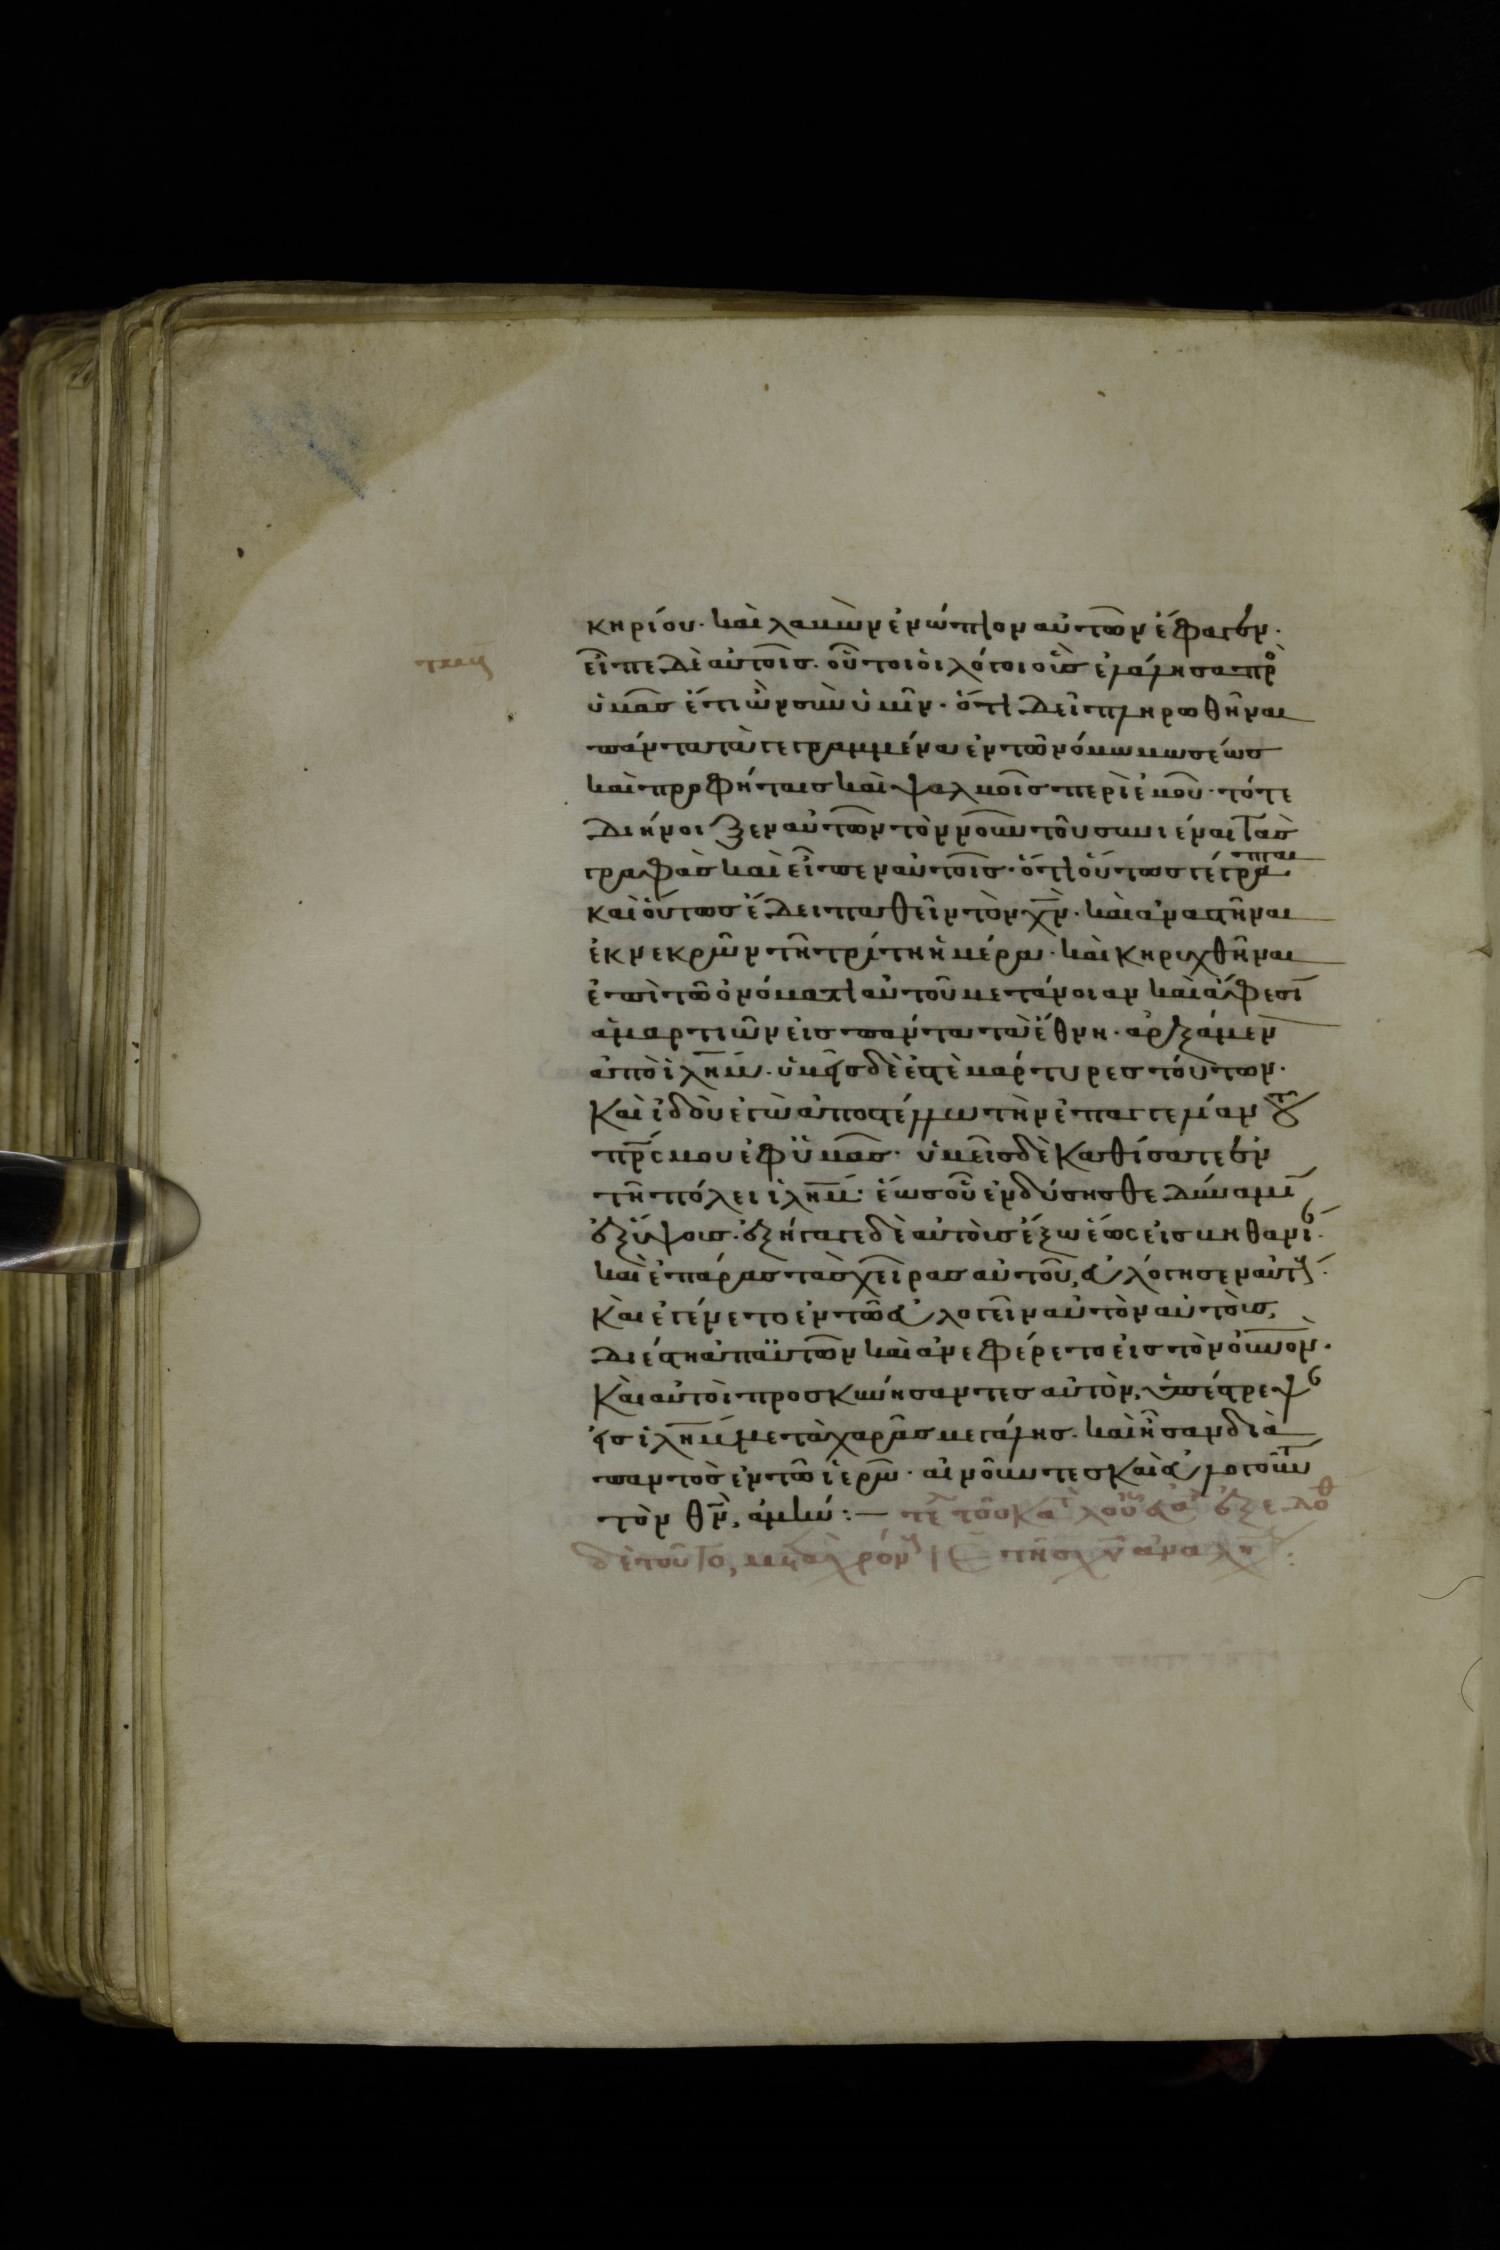 κηρίου. καὶ λαβὼν ἐνώπιον αὐτῶν ἔφαγεν.
εἶπε δὲ αὐτοῖς. οὗτοι οἱ λόγοι οὓς ἐλάλησα πρὸ
ὑμᾶς ἔτι ὢν σὺν ὑμῖν. ὅτι δεῖ πληρωθῆναι
πάντα τὰ γεγραμμένα ἐν τῶ νόμω μωσέως
καὶ προφήταις καὶ ψαλμοῖς περὶ ἐμοῦ. τότε
διήνοιξεν αὐτῶν τὸν νοῦν τοῦ συνιέναι τὰς
γραφὰς καὶ εἶπεν αὐτοῖς. ὅτι οὕτως γέγραπται
καὶ οὕτως ἔδει παθεῖν τὸν χν. καὶ ἀναστῆναι
ἐκ νεκρῶν τῆ τρίτη ἡμέρα. καὶ κηρυχθῆναι
ἐπὶ τῶ ὀνόματι αὐτοῦ μετάνοιαν καὶ ἄφεσι
ἁμαρτιῶν εἰς πάντα τὰ ἔθνη. ἀρξάμεν
ἀπὸ ἱλημ. ὑμεῖς δὲ ἐστὲ μάρτυρες τούτων.
Καὶ ἰδοὺ ἐγὼ ἀποστέλλω τὴν ἐπαγγελίαν τοῦ
πρς μου ἐφ ὑμᾶς. ὑμεῖς δὲ καθίσατε ἐν
τῆ πόλει ἱλημ. ἕως οὗ ἐνδύσησθε δύναμι
ἐξ ὕψους. ἐξήγαγε δὲ αὐτοὺς ἔξω ἕως εἰς βηθανί.
καὶ ἐπάρας τὰς χεῖρας αὐτοῦ, εὐλόγησεν αὐτς.
Καὶ ἐγένετο ἐν τῶ εὐλογεῖν αὐτὸν αὐτοὺς,
διέστη ἀπ αὐτῶν καὶ ἀνεφέρετο εἰς τὸν οὐνον.
Καὶ αὐτοὶ προσκυνήσαντες αὐτὸν, ὑπέστρεψ
εἰς ἱλημ μετὰ χαρᾶς μεγάλης. καὶ ἦσαν διὰ
παντὸς ἐν τῶ ἱερῶ. αἰνοῦντες καὶ εὐλογοῦντ
τὸν θν, ἀμήν:— τε τοῦ κατ λουκ εὐα ἐξεδόθ